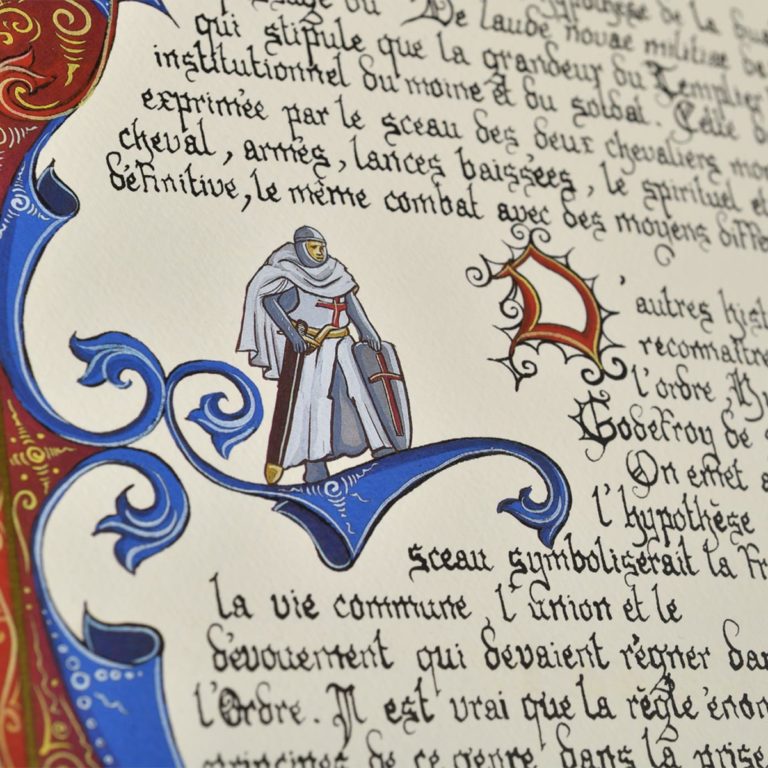 De laude novae militiae
qui stipule que la grandeur du Templier
institutionnel du moine et du soldat. Celle
exprimée par le sceau des deux chevaliers
cheval, armés, lances baissées, le spirituel et
définitive, le même combat avec des moyens
D'autres
reconnaître
l'ordre,
Godefroy de
On émet
l'hypothèse
sceau symboliserait la
la vie commune, l'union et le
dévouement qui devaient régner
l'Ordre. Il est vrai que la règle
principes de ce genre dans la prise